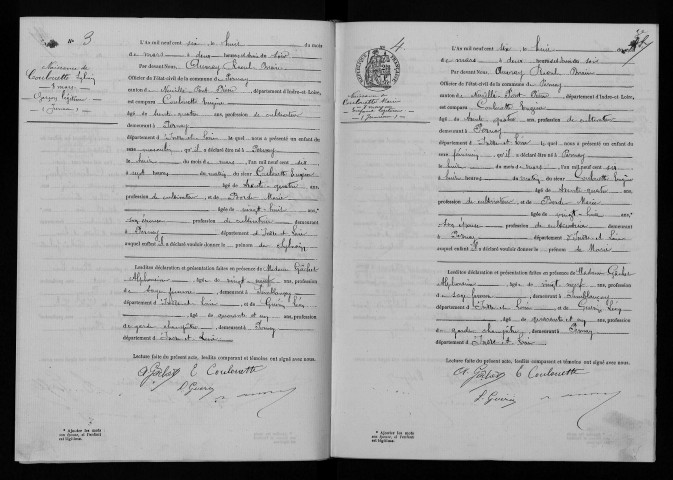 N° 3
Naissance de
Coulouette Sylvain
8 mars
Garçon légitime
(Jumeau)
L'An mil neuf cent six, le huit du mois
de mars à deux heures du soir
Par devant Nous, Auvray Raoul
Officier de l'État civil de la commune de Pernay
canton de Neuillé Pont Pierre, département d'Indre-et-Loire,
est comparu Coulouette Eugène
âgé de trente quatre ans, profession de cultivateur
demeurant à Pernay
département d'Indre et Loire lequel nous a présenté un enfant du
sexe masculin, qu'il a déclaré être né à Pernay
le huit du mois de mars, l'an mil neuf cent six
à sept heures du matin, du sieur Coulouette Eugène
âgé de trente quatre ans,
profession de cultivateur, et de Borde Marie
âgée de vingt huit ans,*
son épouse profession de cultivatrice demeurant
à Pernay département d'Indre et Loire
auquel enfant il a déclaré vouloir donner le prénom de Sylvain
Lesdites déclaration et présentation faites en présence de Madame Gâchet
Alphonsine, âgée de vingt neuf ans, profession
de sage femme, demeurant à Semblançay
département d'Indre et Loire et de Guérin Léon
âgé de quarante et un ans, profession
de garde champêtre, demeurant à Pernay
département d'Indre et Loire
Lecture faite du présent acte, lesdits comparant et témoins ont signé avec nous.
A Gâchet E Coulouette
L Guérin
* Ajouter les mots
son épouse, si l'enfant
est légitime.
N° 4
RÉPUBLIQUE FRANÇAISE
Naissance de
Coulouette Marie
(Jumeau)
L'An mil neuf cent six, le huit du mois
de mars à deux heures du soir
Par devant Nous, Auvray Raoul
Officier de l'État civil de la commune de Pernay
canton de Neuillé Pont Pierre, département d'Indre-et-Loire,
est comparu Coulouette Eugène
âgé de trente quatre ans, profession de cultivateur
demeurant à Pernay
département d'Indre et Loire lequel nous a présenté un enfant du
sexe féminin, qu'il a déclaré être né à Pernay
le huit du mois de mars, l'an mil neuf cent six
à huit heures du matin, du sieur Coulouette Eugène
âgé de trente quatre ans,
profession de cultivateur, et de Borde Marie
âgée de vingt huit ans,*
son épouse profession de cultivatrice demeurant
à Pernay département d'Indre et Loire
auquel enfant il a déclaré vouloir donner le prénom de Marie
Lesdites déclaration et présentation faites en présence de Madame Gâchet
Alphonsine, âgée de vingt neuf ans, profession
de sage femme, demeurant à Semblançay
département d'Indre et Loire et de Guérin Léon
âgé de quarante et un ans, profession
de garde champêtre, demeurant à Pernay
département d'Indre et Loire
Lecture faite du présent acte, lesdits comparant et témoins ont signé avec nous.
A Gâchet E Coulouette
L Guérin
* Ajouter les mots
son épouse, si l'enfant
est légitime.